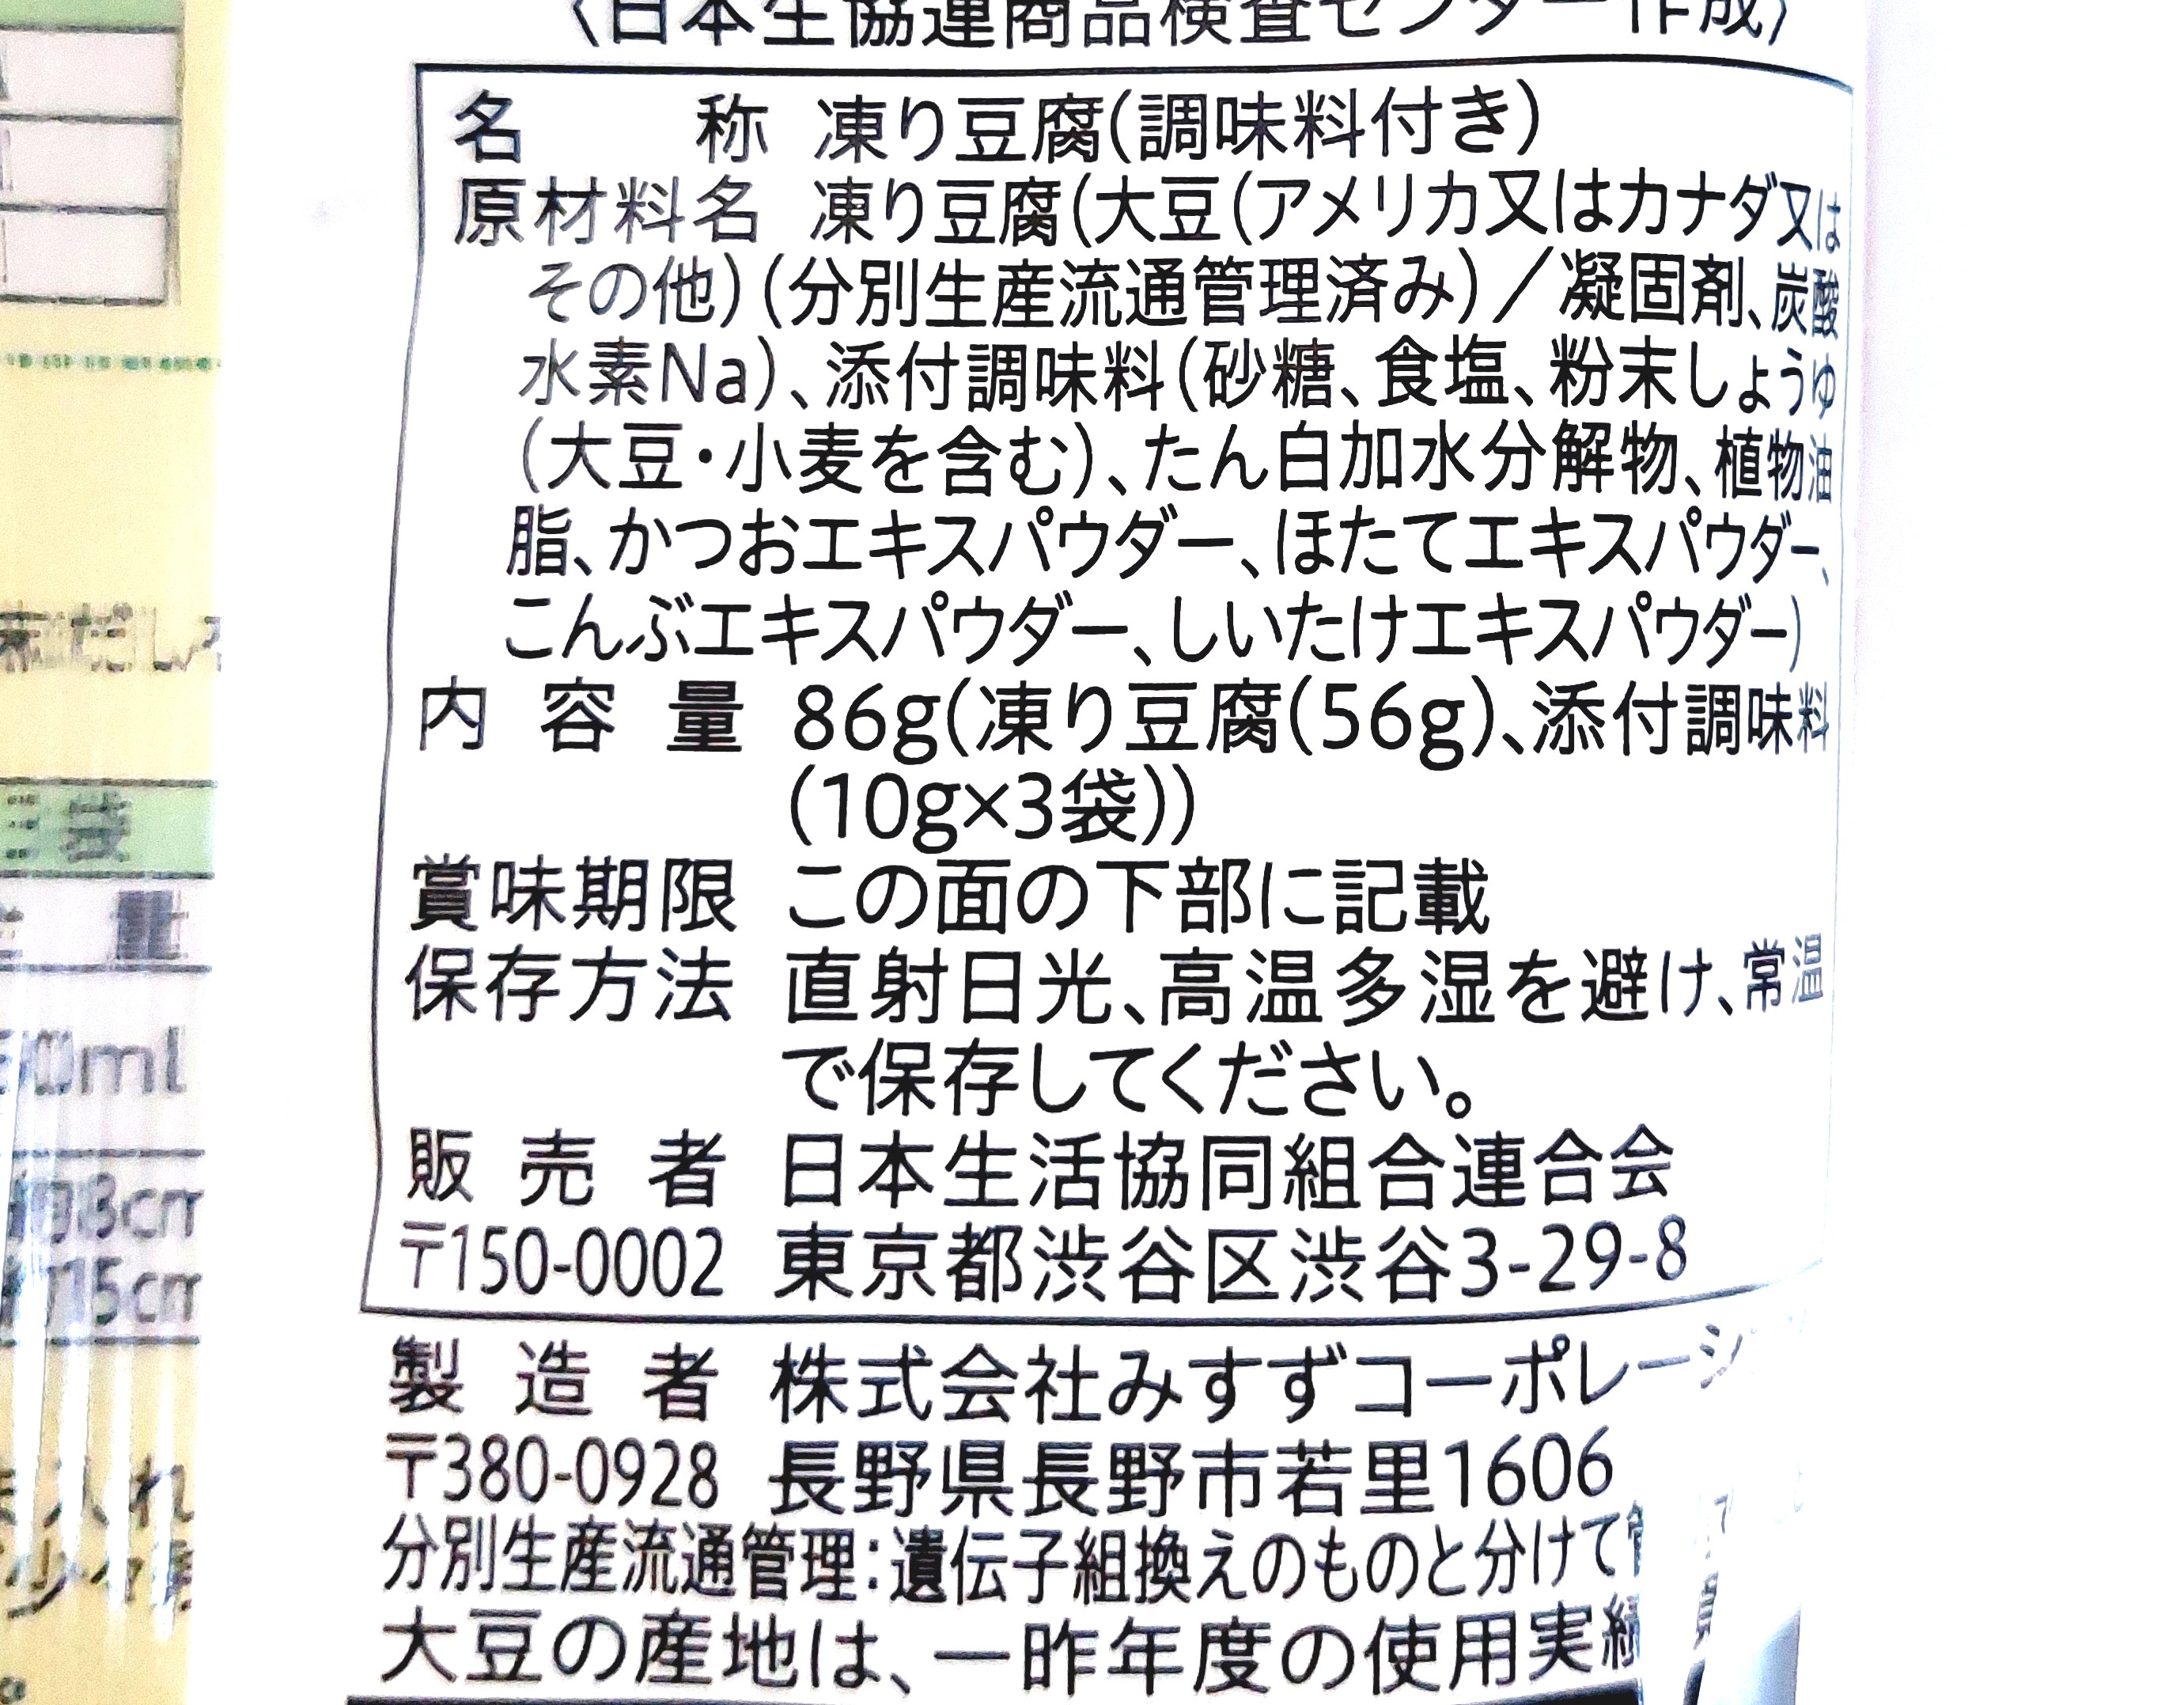 〈日本生協連商品検査センター作成〉
名称 凍り豆腐(調味料付き)
原材料名 凍り豆腐(大豆(アメリカ又はカナダ又は
その他)(分別生産流通管理済み)／凝固剤、炭酸
水素Na)、添付調味料(砂糖、食塩、粉末しょうゆ
(大豆・小麦を含む)、たん白加水分解物、植物油
脂、かつおエキスパウダー、ほたてエキスパウダー、
こんぶエキスパウダー、しいたけエキスパウダー)
内容量 86g(凍り豆腐(56g)、添付調味料
(10g×3袋))
賞味期限 この面の下部に記載
保存方法 直射日光、高温多湿を避け、常温
で保存してください。
販売者 日本生活協同組合連合会
〒150-0002 東京都渋谷区渋谷3-29-8
製造者 株式会社みすずコーポレーシ
〒380-0928 長野県長野市若里1606
分別生産流通管理:遺伝子組換えのものと分けて管
大豆の産地は、一昨年度の使用実績
量
0ml
8cm
15cm
入れ